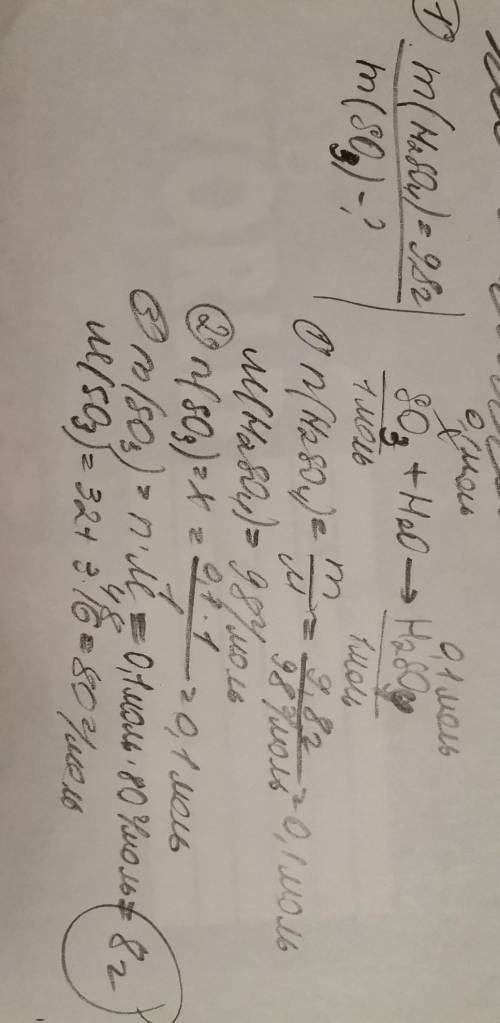 1) m(H₂SO₄) = 9,8г
m(SO₃) - ?
0,1моль 0,1моль
x
SO₃ + H₂O → H₂SO₄
1моль 1моль
① n(H₂SO₄) = m/M = 9,8г/98г/моль = 0,1моль
M(H₂SO₄) = 98г/моль
② n(SO₃) = x = 0,1·1/1 = 0,1моль
③ m(SO₃) = n·M = 0,1моль·80г/моль = 8г
48
M(SO₃) = 32 + 3·16 = 80г/моль